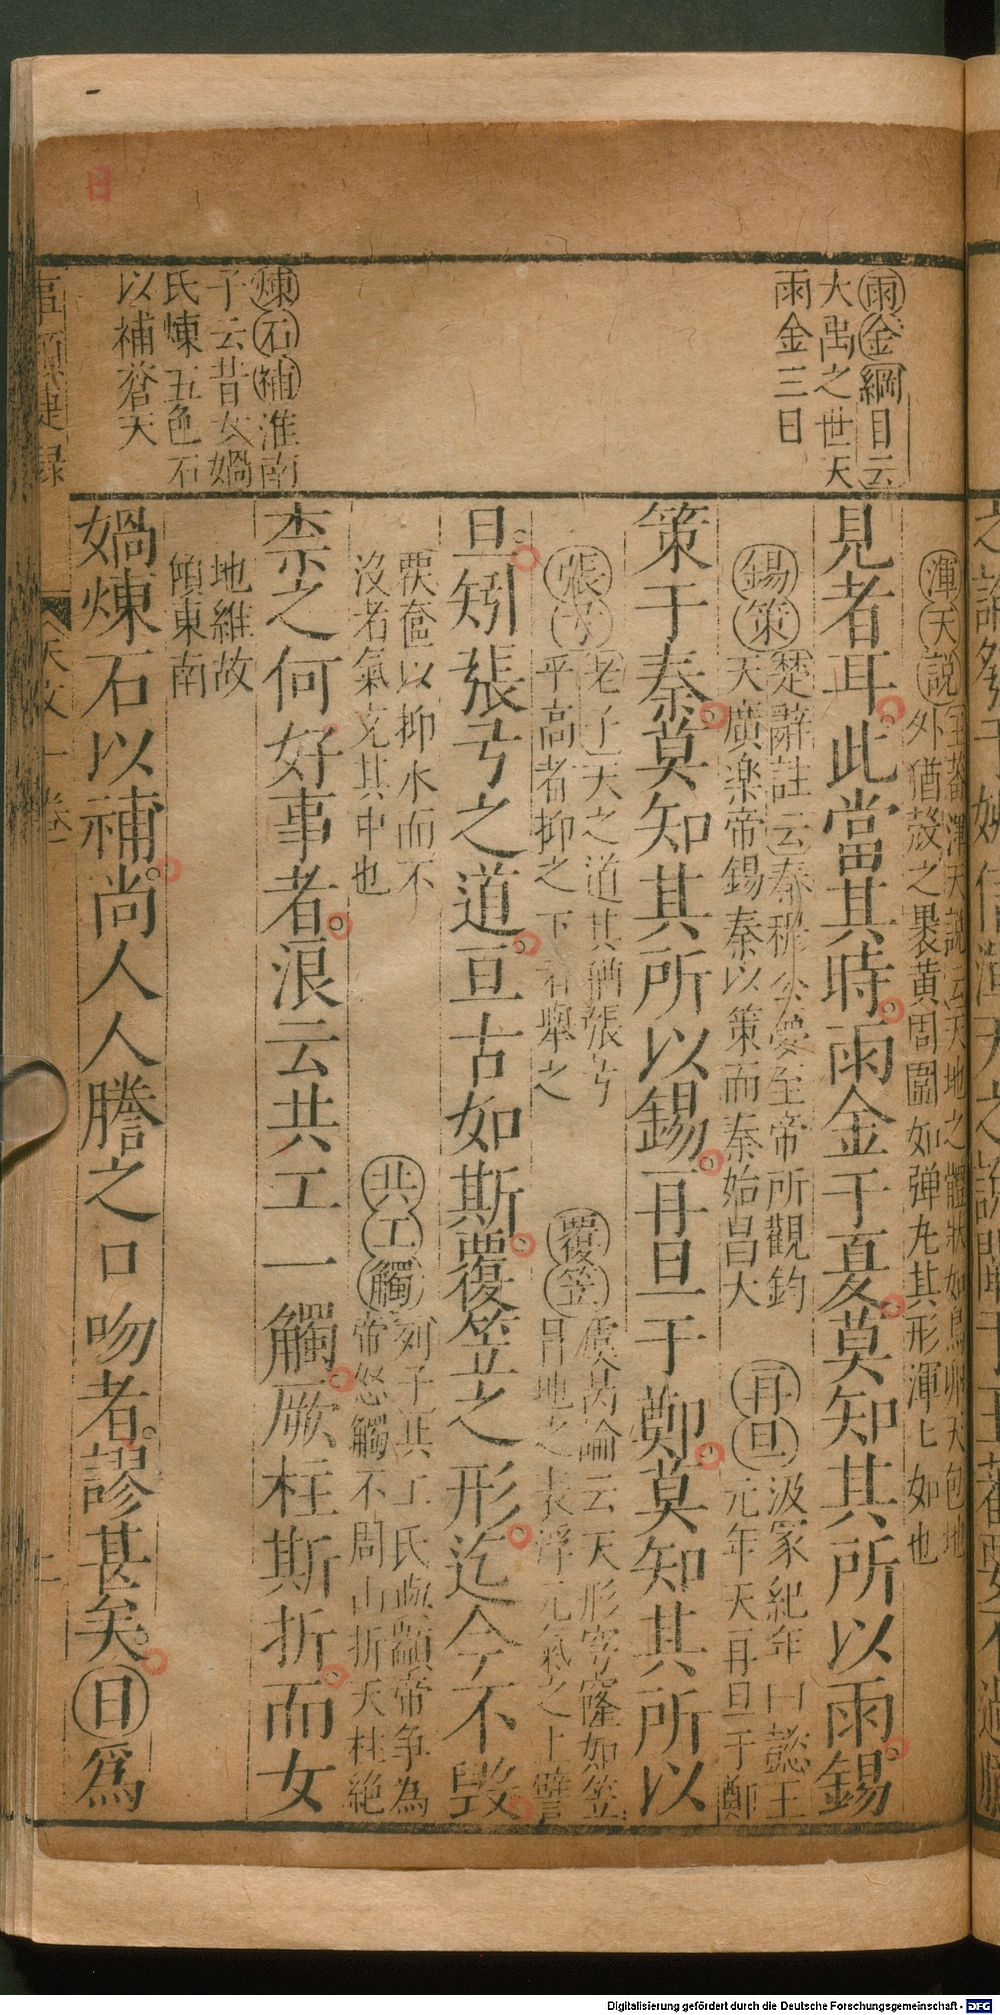 日
雨金綱目云
大禹之世天
雨金三日
煉石補淮南
子云昔女媧
氏煉五色石
以補蒼天
渾天說王蕃渾天說云天地之體狀如鳥卵天包地
外猶殼之裹黃周圍如弹丸其形渾七如也
見者耳此當其時雨金于夏莫知其所以雨錫
錫策楚辭註云秦穆公夢至帝所觀鈞
天廣楽帝錫秦以策而秦始昌大
再旦汲冢紀年曰懿王
元年天再旦于鄭
策于秦莫知其所以錫再旦于鄭莫知其所以
張弓老子天之道其猶張弓
乎高者抑之下者舉之
覆笠虞昺論云天形穹窿如笠
冒地之表浮元氣之上譬
旦矧張弓之道亘古如斯覆笠之形迄今不毁
覆奩以抑水而不
沒者氣充其中也
共工觸列子共工氏與顓帝爭為
帝怒觸不周山折天柱絶
柰之何好事者浪云共工一觸厥柱斯折而女
地維故
傾東南
媧煉石以補尚人人謄之口吻者謬甚矣日爲
天文一卷
上
Digitalisierung gefördert durch die Deutsche Forschungsgemeinschaft - DFG